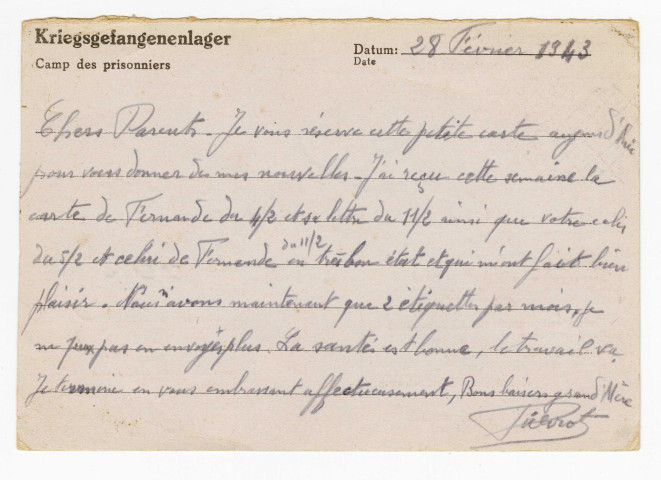 Kriegsgefangenenlager
Camp des prisonniers
Datum: 28 Février 1943
Date
Chers Parents - Je vous réserve cette petite carte aujourd'hui
pour vous donner de mes nouvelles - J'ai reçu cette semaine la
carte de Fernande du 4/2 et sa lettre du 11/2 ainsi que votre colis
du 5/2 et celui de Fernande du 11/2 en très bon état et qui m'ont fait bien
plaisir. Nous n'avons maintenant que 2 étiquettes par mois, je
ne peux pas en envoyer plus. La santé est bonne, le travail va
Je termine en vous embrassant affectueusement, Bons baisers grand'Mère
Pierrot